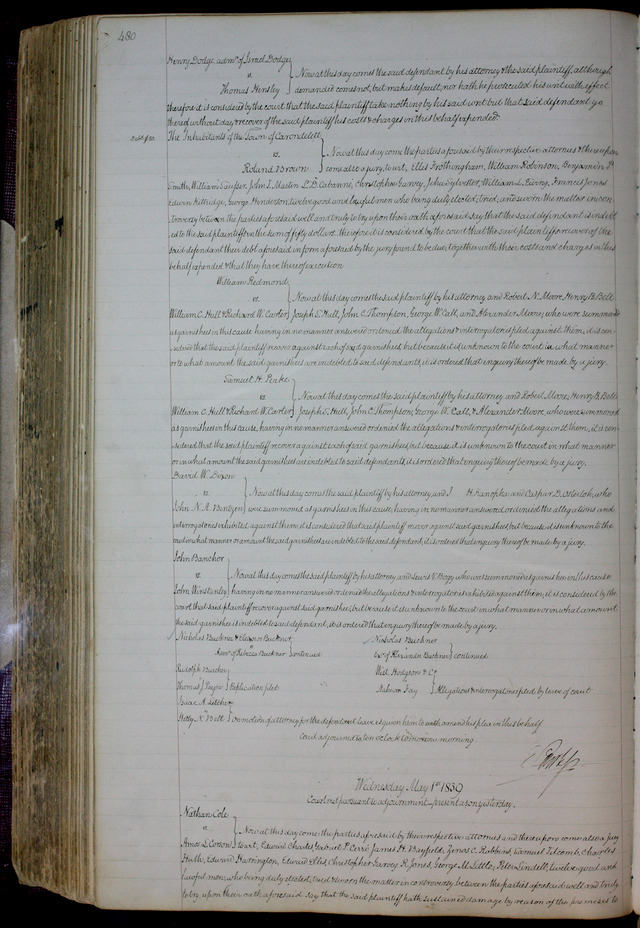 480
Henry Dodge admr of Israel Dodge
vs
Thomas Hinsley
Now at this day comes the said defendant by his attorney & the said plaintiff, although
demanded comes not, but makes default, nor hath he prosecuted his writ with effect
therefore it is considered by the court that the said plaintiff take nothing by his said writ but that said defendant go
thereof without day & recover of the said plaintiff his costs & charges in this behalf expended.
The Inhabitants of the Town of Carondelett
vs.
Roland Brown
Now at this day come the parties aforesaid by their respective attornies & thereupon
come also a jury, to wit, Ellis Frothingham, William Robinson, Benjamin
Smith, William John L. Martin L. D. Cabanné, Christopher Garvey, John Sylvester, William L. Ewing, Francis Jones
Edwin Kittridge, George Henderson, twelve good and lawful men who being duly elected, tried, and sworn the matter in con-
troversy between the parties aforesaid well and truly to try upon their oath aforesaid say that the said defendant is indebt
ed to the said plaintiffs in the sum of fifty dollars. therefore it is considered by the court that the said plaintiffs recover of the
said defendant their debt aforesaid in form aforesaid by the jury found to be due, together with their costs and charges in this
behalf expended & that they have thereof execution
William Redmond
vs.
William C. Hull & Richard W. Carter
Now at this day comes the said plaintiff by his attorney and Robert N. Moore, Henry B. Belt
Joseph S. Hull, John C. Thompson, George W. Call, and Alexander Moore, who were summoned
as garnishees in this cause having in no manner answered or denied the allegations & interrogatories filed against them, it is con-
sidered that the said plaintiff recover against each of said garnishees, but because it is unknown to the court in what manner
or to what amount the said garnishees are indebted to said defendants, it is ordered that enquiry thereof be made by a jury.
Samuel H. Peake
vs.
William C. Hull & Richard W. Carter
Now at this day comes the said plaintiff by his attorney and Robert Moore, Henry B. Belt
Joseph S. Hull, John C. Thompson, George W. Call, & Alexander Moore, who were summoned
as garnishees in this cause, having in no manner answered or denied the allegations & interrogatories filed against them, it is con-
sidered that the said plaintiff recover against each of said garnishees, but because it is unknown to the court in what manner
or in what amount the said garnishees are indebted to said defendants, it is ordered that enquiry thereof be made by a jury.
David W. Dixon
vs.
John N. A. Bentzen
Now at this day comes the said plaintiff by his attorney and J H. Hanopha and Caspar D. Osterloh, who
were summoned as garnishees in this cause, having in no manner answered or denied the allegations and
interrogatories exhibited against them it is considered that said plaintiff recover against said garnishees but because it is unknown to the
court in what manner or amount the said garnishees are indebted to the said defendant, it is ordered that enquiry thereof be made by a jury.
John Banchor
vs.
John Winstanley
Now at this day comes the said plaintiff by his attorney and Lewis V. Bogy who was summoned as garnishee in this cause
having in no manner answered or denied the allegations & interrogatories exhibited against them, it is considered by the
court that said plaintiff recover against said garnishee, but because it is unknown to the court in what manner or in what amount
the said garnishee is indebted to said defendant, it is ordered that enquiry thereof be made by a jury.
Nicholas Buckner & Eleanor Buckner
Admr of Rebecca Buckner } continued
Nicholas Buckner
Exr of Alexander Buckner } continued
Rudolph Bircher
vs
Thomas J Payne } Replication filed
Will. Hodgson & Co
vs
Nahum Fay } Allegations & interrogatories filed by leave of court
Isaac A. Letcher
vs
Hetty N. Bell } On motion of attorney for the defendant leave is given him to amend his plea in this behalf
Court adjourned to ten o'clock tomorrow morning.
Wednesday May 1st 1839
Court met pursuant to adjournment—present as on yesterday.
Nathan Cole
vs
Amos L. Corson
Now at this day come the parties aforesaid by their respective attornies and thereupon comes also a jury
to wit, Edward Charles, Gabriel P. Cerré, James H. Bayfield, Zenos C. Robbins, Samuel Titcomb, Charles
Huth, Edward Harrington, Edward Ellis, Christopher Garvey, R. Jones, George M. Little, Peter Lindell, twelve good and
lawful men, who being duly elected, tried & sworn the matter in controversy between the parties aforesaid well and truly
to try upon their oath aforesaid say that the said plaintiff hath sustained damage by reason of the premises to